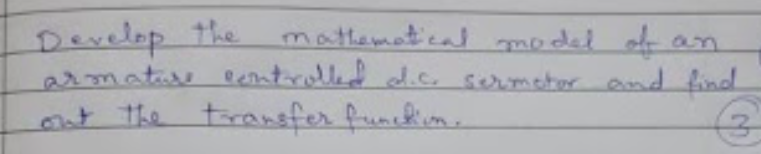 Develop the mathematical model of an
armature controlled d.c. sermotor and find
out the transfer function. (3)